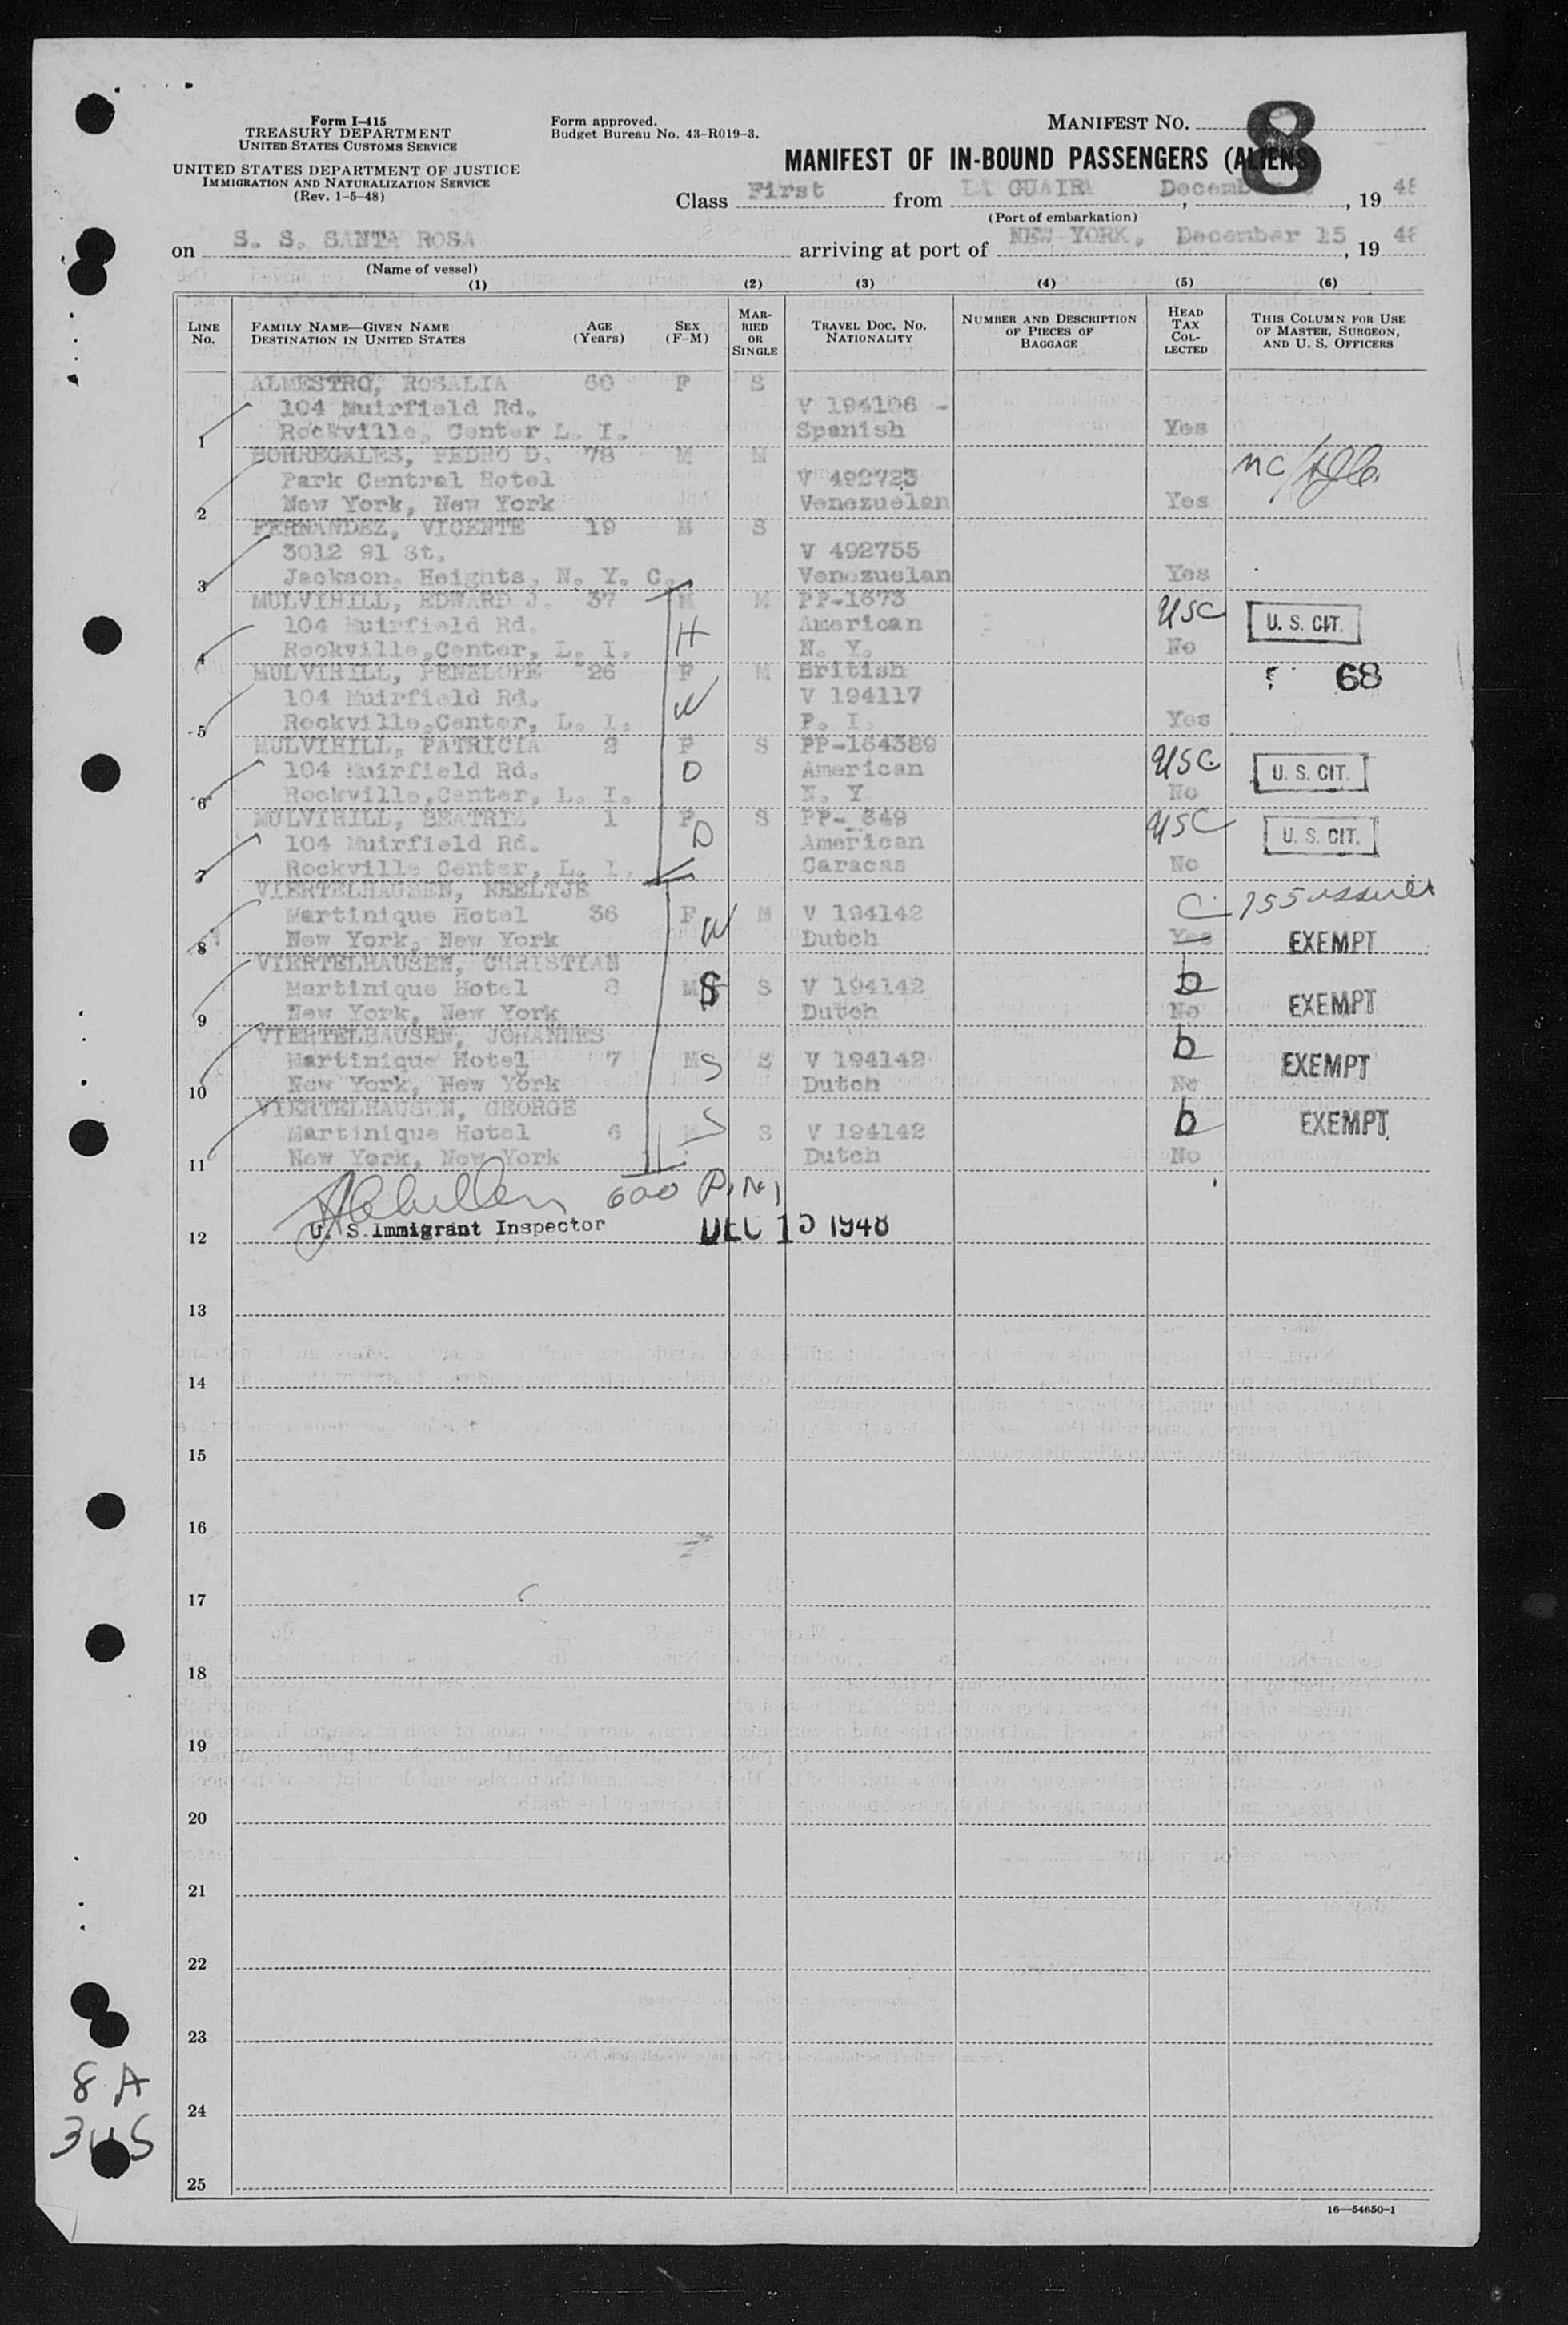 Form I-415
TREASURY DEPARTMENT
UNITED STATES CUSTOMS SERVICE
UNITED STATES DEPARTMENT OF JUSTICE
IMMIGRATION AND NATURALIZATION SERVICE
(Rev. 1-5-48)
Form approved.
Budget Bureau No. 43-R019-3.
MANIFEST NO. 8
MANIFEST OF IN-BOUND PASSENGERS (ALIENS)
Class First from LA GUAIRA December , 19 48
(Port of embarkation)
on S. S. SANTA ROSA arriving at port of NEW YORK, December 15, 19 48
(Name of vessel)
(1) (2) (3) (4) (5) (6)
LINE No. FAMILY NAME—GIVEN NAME DESTINATION IN UNITED STATES AGE (Years) SEX (F-M) MARRIED OR SINGLE TRAVEL DOC. NO. NATIONALITY NUMBER AND DESCRIPTION OF PIECES OF BAGGAGE HEAD TAX COLLECTED THIS COLUMN FOR USE OF MASTER, SURGEON, AND U. S. OFFICERS
ALMESTRO, ROSALIA 60 F S
104 Muirfield Rd. V 194106 -
1 Rockville, Center L. I. Spanish Yes
BORREGALES, PEDRO D. 78 M M
Park Central Hotel V 492723
2 New York, New York Venezuelan Yes
FERNANDEZ, VICENTE 19 M S
3012 91 St. V 492755
3 Jackson, Heights, N. Y. C. Venezuelan Yes
MULVIHILL, EDWARD J. 37 M M PP-1673 USC
104 Muirfield Rd. H American U. S. CIT.
4 Rockville,Center, L. I. N. Y. No
MULVIHILL, PENELOPE 26 F M British 68
104 Muirfield Rd. W V 194117
5 Rockville,Center, L. I. P. I. Yes
MULVIHILL, PATRICIA 2 F S PP-164389
104 Muirfield Rd. D American USC U. S. CIT.
6 Rockville,Center, L. I. N. Y. No
MULVIHILL, BEATRIZ 1 F S PP- 649 USC
104 Muirfield Rd. D American U. S. CIT.
7 Rockville Center, L. I. Caracas No
VIERTELHAUSEN, NEELTJE
Martinique Hotel 36 F W M V 194142 C
8 New York, New York Dutch Yes EXEMPT
VIERTELHAUSEN, CHRISTIAN
Martinique Hotel 8 M S S V 194142 b
9 New York, New York Dutch No EXEMPT
VIERTELHAUSEN, JOHANNES
Martinique Hotel 7 M S S V 194142 b EXEMPT
10 New York, New York Dutch No
VIERTELHAUSEN, GEORGE
Martinique Hotel 6 M S S V 194142 b EXEMPT
11 New York, New York Dutch No
600 P.M.
12 U. S. Immigrant Inspector DEC 15 1948
13
14
15
16
17
18
19
20
21
22
23
24
25
8 A
3 US
16—54650-1